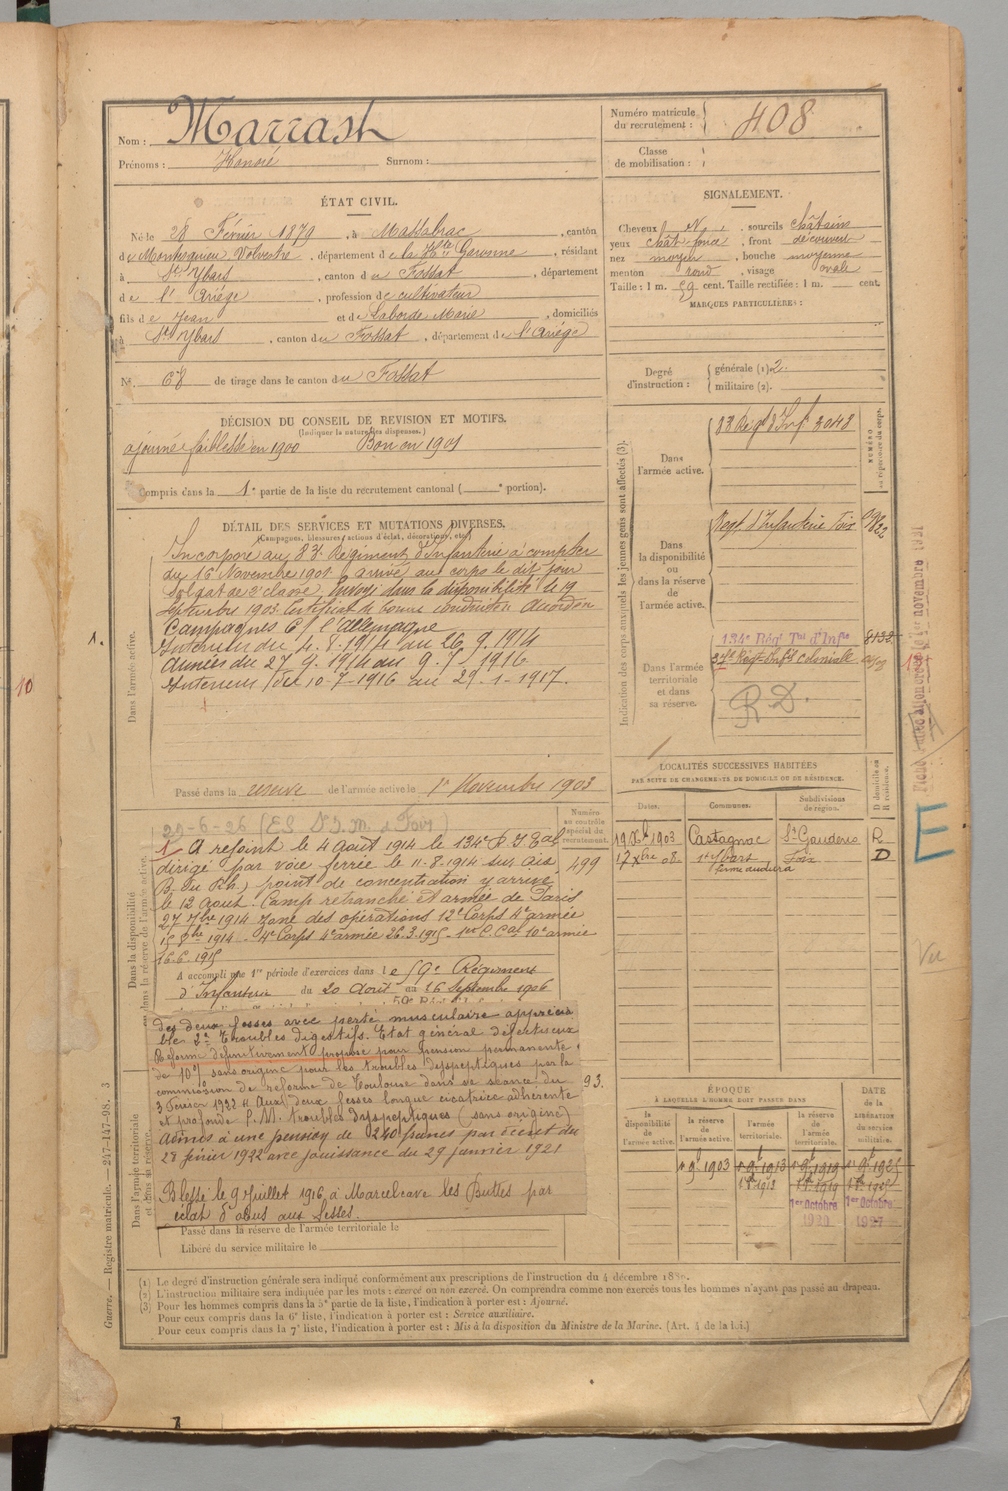 Nom : Marrast
Prénoms : Honoré Surnom :
Numéro matricule du recrutement : 408
Classe de mobilisation :
ÉTAT CIVIL.
Né le 28 Février 1879, à Massabrac, canton
de Montesquieu Volvestre, département de la Hte Garonne, résidant
à St Ybars, canton du Fossat, département
de l'Ariège, profession de cultivateur
fils de Jean et de Laborde Marie, domiciliés
à St Ybars, canton du Fossat, département de l'Ariège
N° 68 de tirage dans le canton du Fossat
SIGNALEMENT.
Cheveux N., sourcils châtains
yeux chât foncé, front découvert
nez moyen, bouche moyenne
menton rond, visage ovale
Taille : 1 m. 59 cent. Taille rectifiée : 1 m. cent.
MARQUES PARTICULIÈRES :
Degré d'instruction : générale (1) 2.
militaire (2).
DÉCISION DU CONSEIL DE REVISION ET MOTIFS.
(Indiquer la nature des dispenses.)
ajourné faiblesse en 1900 Bon en 1901
Compris dans la 1e partie de la liste du recrutement cantonal ( e portion).
DÉTAIL DES SERVICES ET MUTATIONS DIVERSES.
(Campagnes, blessures, actions d'éclat, décorations, etc.)
Dans l'armée active.
Incorporé au 83e Régiment d'Infanterie à compter
du 16 Novembre 1901 arrivé au corps le dit jour
Soldat de 2e classe, Envoyé dans la disponibilité le 19
Septembre 1903. Certificat de bonne conduite Accordé
Campagnes C/ l'Allemagne
Intérieur du 4.8.1914 au 26.9.1914
Armées du 27.9.1914 au 9.7.1916
Intérieur du 10-7-1916 au 29-1-1917.
1.
10
Passé dans la réserve de l'armée active le 1er Novembre 1903
Indication des corps auxquels les jeunes gens sont affectés (3).
NUMÉRO au répertoire du corps.
Dans l'armée active.
83 Régt d'Inf 3048
Dans la disponibilité ou dans la réserve de l'armée active.
Régt d'Infanterie Foix
Dans l'armée territoriale et dans sa réserve.
134e Régt Tal d'Infie 8132
37e Régt Inf coloniale
R D.
LOCALITÉS SUCCESSIVES HABITÉES
PAR SUITE DE CHANGEMENTS DE DOMICILE OU DE RÉSIDENCE.
Dates. Communes. Subdivisions de région. D domicile ou R résidence.
1903 Castagnac St Gaudens R
17 Xbre 08 St Ybars Foix D
Dans la disponibilité ou dans la réserve de l'armée active.
Numéro au contrôle spécial du recrutement
499
29-6-26
A rejoint le 4 Août 1914 le 134e R.I. Tal
dirigé par voie ferrée le 11-8-1914 sur Aix
(B. du Rh.) point de concentration y arrive
le 12 Août. Camp retranché et armée de Paris
27 7bre 1914 Zone des opérations 12e Corps 4e armée
15 8bre 1914. 4e Corps 4e armée 26.3.1915. 1er C. Cal 10e armée
16.6.1915
A accompli une 1re période d'exercices dans le 59e Régiment
d'Infanterie du 20 Août au 16 Septembre 1906
des deux fesses avec perte musculaire apprécia
bles 2° Troubles digestifs. Etat général défectueux
Réformé définitivement proposé pour pension permanente
de 10% sans origine pour les troubles dyspeptiques par la
commission de réforme de Toulouse dans sa séance du
3 Février 1922 Aux deux fesses longue cicatrice adhérente
et profonde P.M. troubles dyspeptiques (sans origine)
Admis à une pension de 240 francs par décret du
28 février 1922 avec jouissance du 29 janvier 1921
Blessé le 9 Juillet 1916 à Marcelcave les Buttes par
éclat d'obus aux fesses.
93.
Dans l'armée territoriale et dans sa réserve.
Passé dans la réserve de l'armée territoriale le
Libéré du service militaire le
ÉPOQUE
À LAQUELLE L'HOMME DOIT PASSER DANS
la disponibilité de l'armée active.
la réserve de l'armée active.
l'armée territoriale.
la réserve de l'armée territoriale.
DATE de la LIBÉRATION DU SERVICE militaire.
1903 1913 1919
1er Octobre 1er Octobre
1927
E
Guerre. — Registre matricule. — 247-147-98. 3
(1) Le degré d'instruction générale sera indiqué conformément aux prescriptions de l'instruction du 4 décembre
(2) L'instruction militaire sera indiquée par les mots : exercé ou non exercé. On comprendra comme non exercés tous les hommes n'ayant pas passé au drapeau.
(3) Pour les hommes compris dans la 5e partie de la liste, l'indication à porter est : Ajourné.
Pour ceux compris dans la 6e liste, l'indication à porter est : Service auxiliaire.
Pour ceux compris dans la 7e liste, l'indication à porter est : Mis à la disposition du Ministre de la Marine. (Art. 4 de la loi.)